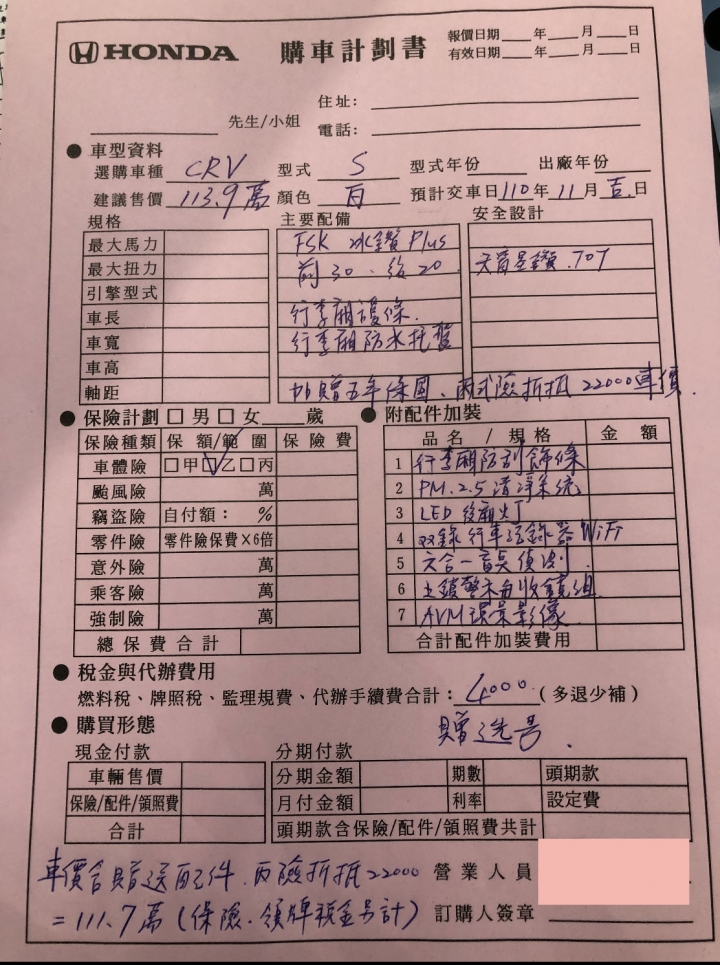 HONDA 購車計劃書 報價日期___年___月___日
有效日期___年___月___日
住址:
先生/小姐 電話:
● 車型資料
選購車種 CRV 型式 S 型式年份 出廠年份
建議售價 113.9萬 顏色 白 預計交車日 110年 11月 吉日
規格 主要配備 安全設計
最大馬力 FSK 冰鑽 Plus
最大扭力 前30、後20 天窗星鑽.70T
引擎型式
車長 行李廂護條.
車寬 行李廂防水托盤
車高
軸距 加贈五年保固、丙式險折抵22000車價.
● 保險計劃 □ 男 □ 女____歲 ● 附配件加裝
保險種類 保額/範圍 保險費 品名/規格 金額
車體險 □甲□乙□丙 1 行李廂防刮飾條
颱風險 萬 2 PM.2.5清淨系統
竊盜險 自付額: % 3 LED 後廂燈
零件險 零件險保費×6倍 4 雙錄行車記錄器WiFi
意外險 萬 5 六合一盲點偵測
乘客險 萬 6 上鎖暨自收鏡組
強制險 萬 7 AVM環景影像
總保費合計 合計配件加裝費用
● 稅金與代辦費用
燃料稅、牌照稅、監理規費、代辦手續費合計: 4000 (多退少補)
● 購買形態 贈選號.
現金付款 分期付款
車輛售價 分期金額 期數 頭期款
保險/配件/領照費 月付金額 利率 設定費
合計 頭期款含保險/配件/領照費共計
車價含贈送配件.丙險折抵22000 營業人員
=111.7萬(保險.領牌稅金另計) 訂購人簽章